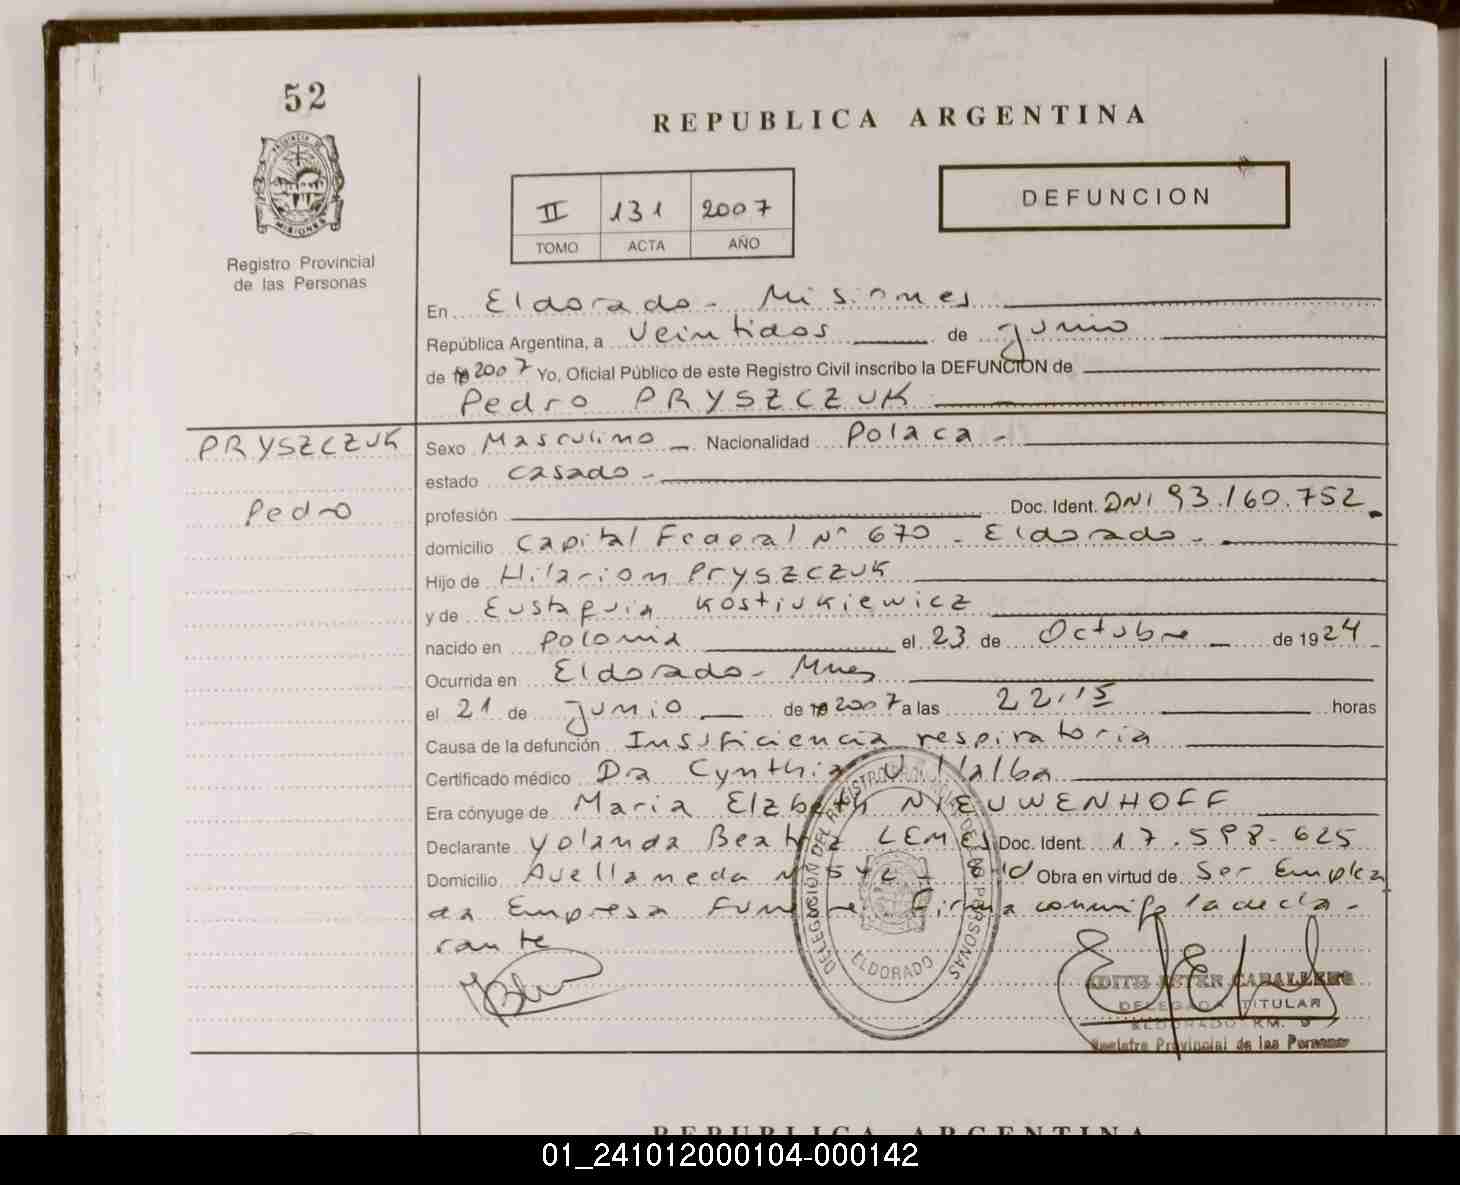 52
REPUBLICA ARGENTINA
II 131 2007
TOMO ACTA AÑO
DEFUNCION
PROVINCIA DE
MISIONES
Registro Provincial
de las Personas
En Eldorado - Misiones
República Argentina, a Veintidos de Junio
de 19 2007 Yo, Oficial Público de este Registro Civil inscribo la DEFUNCION de
Pedro PRYSZCZUK
PRYSZCZUK
Pedro
Sexo Masculino - Nacionalidad Polaca -
estado casado -
profesión Doc. Ident. DNI 93.160.752
domicilio Capital Federal Nº 670 - Eldorado -
Hijo de Hilarion Pryszczuk
y de Eustaquia Kostiukiewicz
nacido en Polonia el 23 de Octubre de 1924
Ocurrida en Eldorado - Mnes
el 21 de Junio de 19 2007 a las 22,15 horas
Causa de la defunción Insuficiencia respiratoria
Certificado médico Dra Cynthia Villalba
Era cónyuge de Maria Elzbeth NIEUWENHOFF
Declarante Yolanda Beatriz LEMES Doc. Ident. 17.598.625
Domicilio Avellaneda Nº 542 - Eld Obra en virtud de Ser Emplea
da Empresa Funebre. Firma conmigo la decla-
rante
DELEGACIÓN DEL REGISTRO PROVINCIAL DE LAS PERSONAS
ELDORADO
EDITH ESTER CABALLERO
DELEGADA TITULAR
ELDORADO KM. 9
Registro Provincial de las Personas
REPUBLICA ARGENTINA
01_241012000104-000142